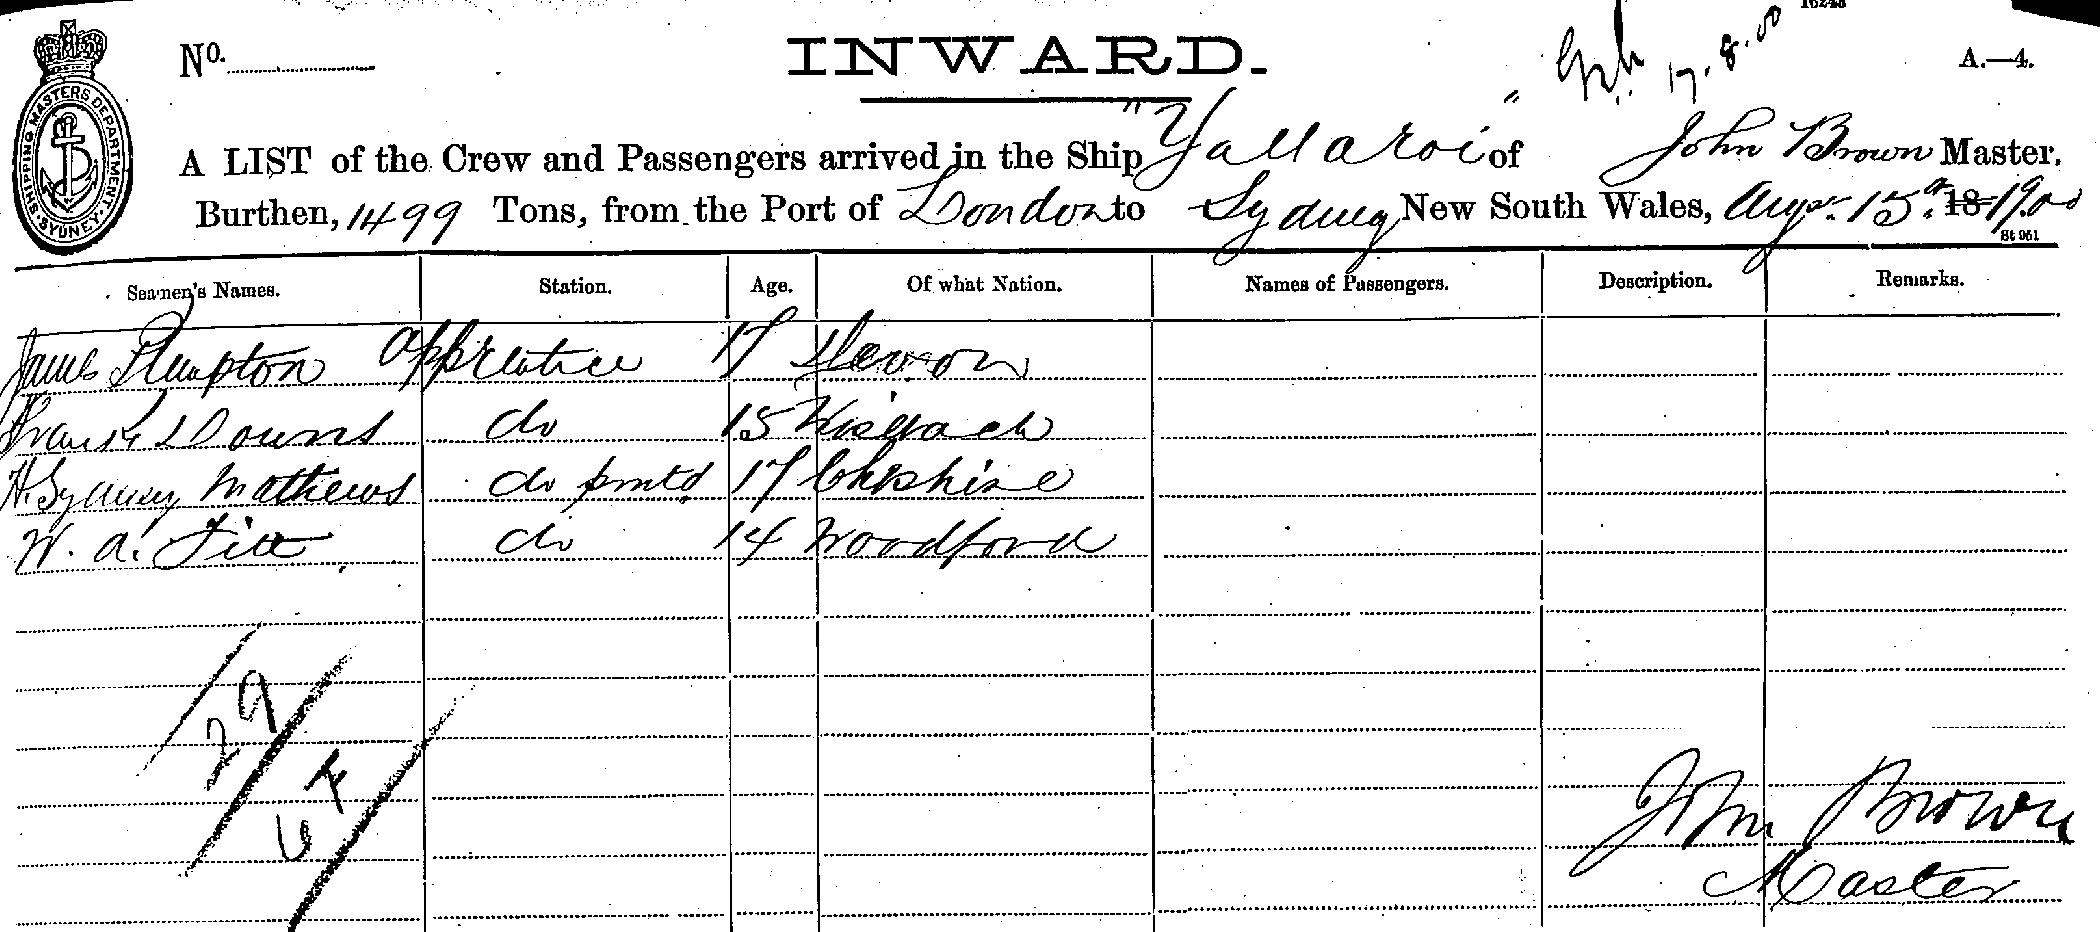 16248
No.
INWARD.
17.8.00
A.—4.
A LIST of the Crew and Passengers arrived in the Ship "Yallaroi" of John Brown Master,
Burthen, 1499 Tons, from the Port of London to Sydney New South Wales, Augst. 15th 18 1900
St 961
SHIPPING MASTERS DEPARTMENT. SYDNEY.
Seamen's Names. Station. Age. Of what Nation. Names of Passengers. Description. Remarks.
James Plumpton apprentice 17 Devon
Frank Downs do 15 Wisbach
H. Sydney Mathews do 17 Cheshire
W. A. do 14 Woodford
29
64
John Brown
Master